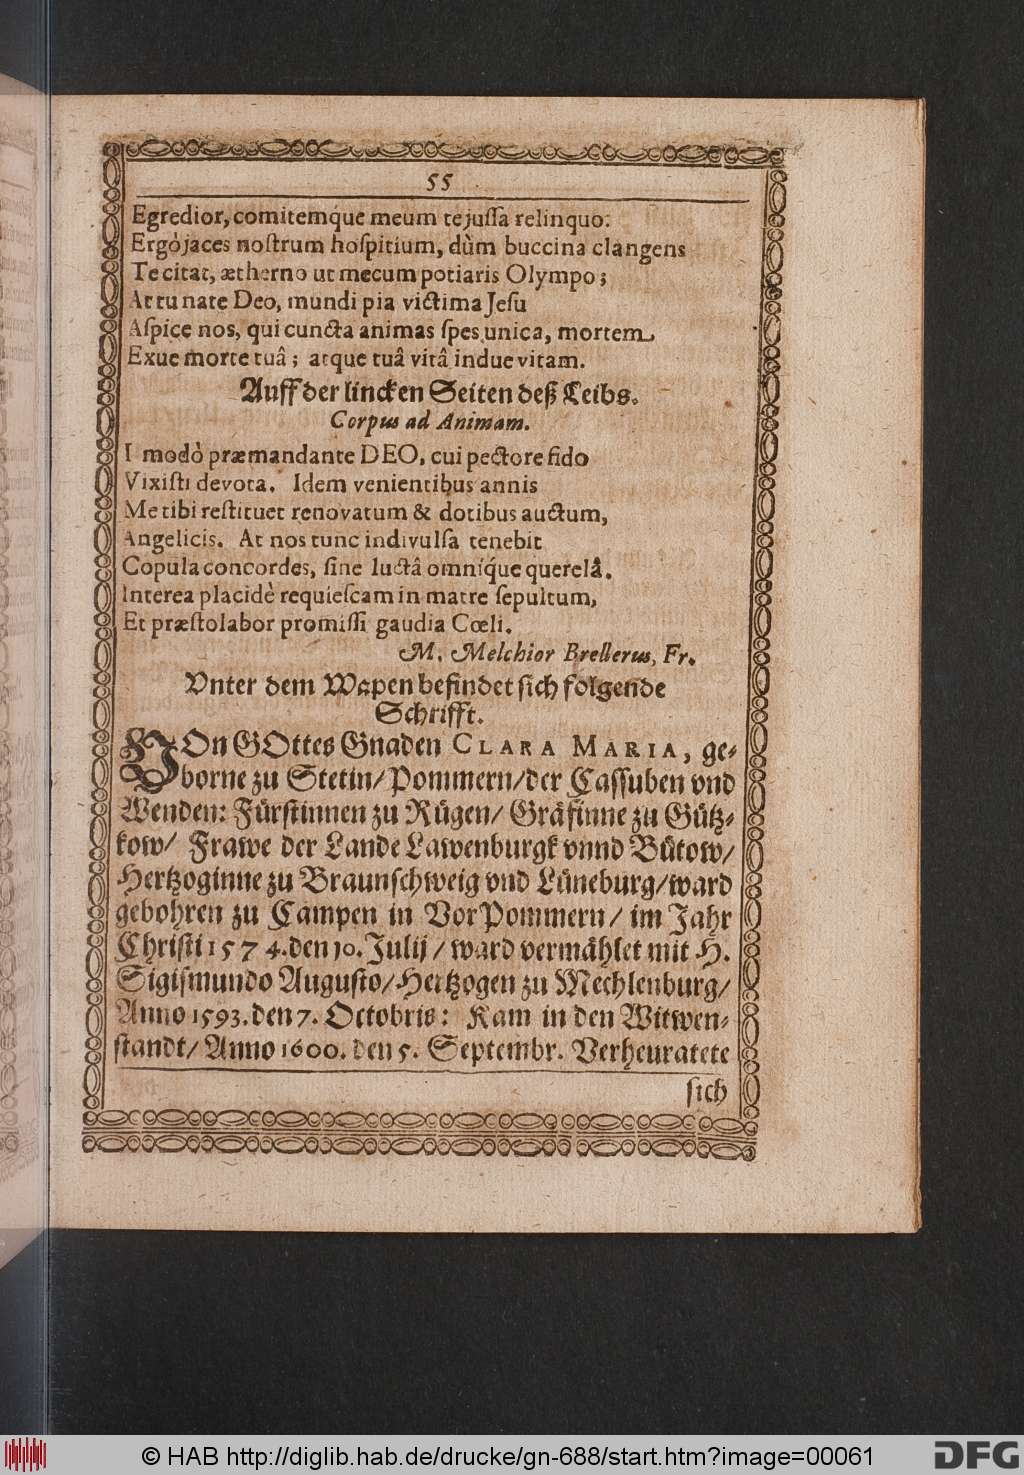 55
Egredior, comitemq́ue meum te jussa relinquo:
Ergò jaces nostrum hospitium, dùm buccina clangens
Te citat, ætherno ut mecum potiaris Olympo;
At tu nate Deo, mundi pia victima Jesu
Aspice nos, qui cuncta animas spes unica, mortem
Exue morte tuâ; atque tuâ vitâ indue vitam.
Auff der lincken Seiten deß Leibs.
Corpus ad Animam.
I modò præmandante DEO, cui pectore fido
Vixisti devota. Idem venientibus annis
Me tibi restituet renovatum & dotibus auctum,
Angelicis. At nos tunc indivulsa tenebit
Copula concordes, sine luctâ omniq́ue querelâ.
Interea placidè requiescam in matre sepultum,
Et præstolabor promissi gaudia Cœli.
M. Melchior Brellerus, Fr.
Vnter dem Wapen befindet sich folgende
Schrifft.
VOn GOttes Gnaden CLARA MARIA, ge-
borne zu Stetin/ Pommern/ der Cassuben vnd
Wenden: Fürstinnen zu Rügen/ Gräfinne zu Gütz-
kow/ Frawe der Lande Lawenburgk vnnd Bütow/
Hertzoginne zu Braunschweig vnd Lüneburg/ ward
gebohren zu Campen in VorPommern/ im Jahr
Christi 1574. den 10. Julij/ ward vermählet mit H.
Sigismundo Augusto/ Hertzogen zu Mechlenburg/
Anno 1593. den 7. Octobris: Kam in den Witwen-
standt/ Anno 1600. den 5. Septembr. Verheuratete
sich
© HAB http://diglib.hab.de/drucke/gn-688/start.htm?image=00061
DFG